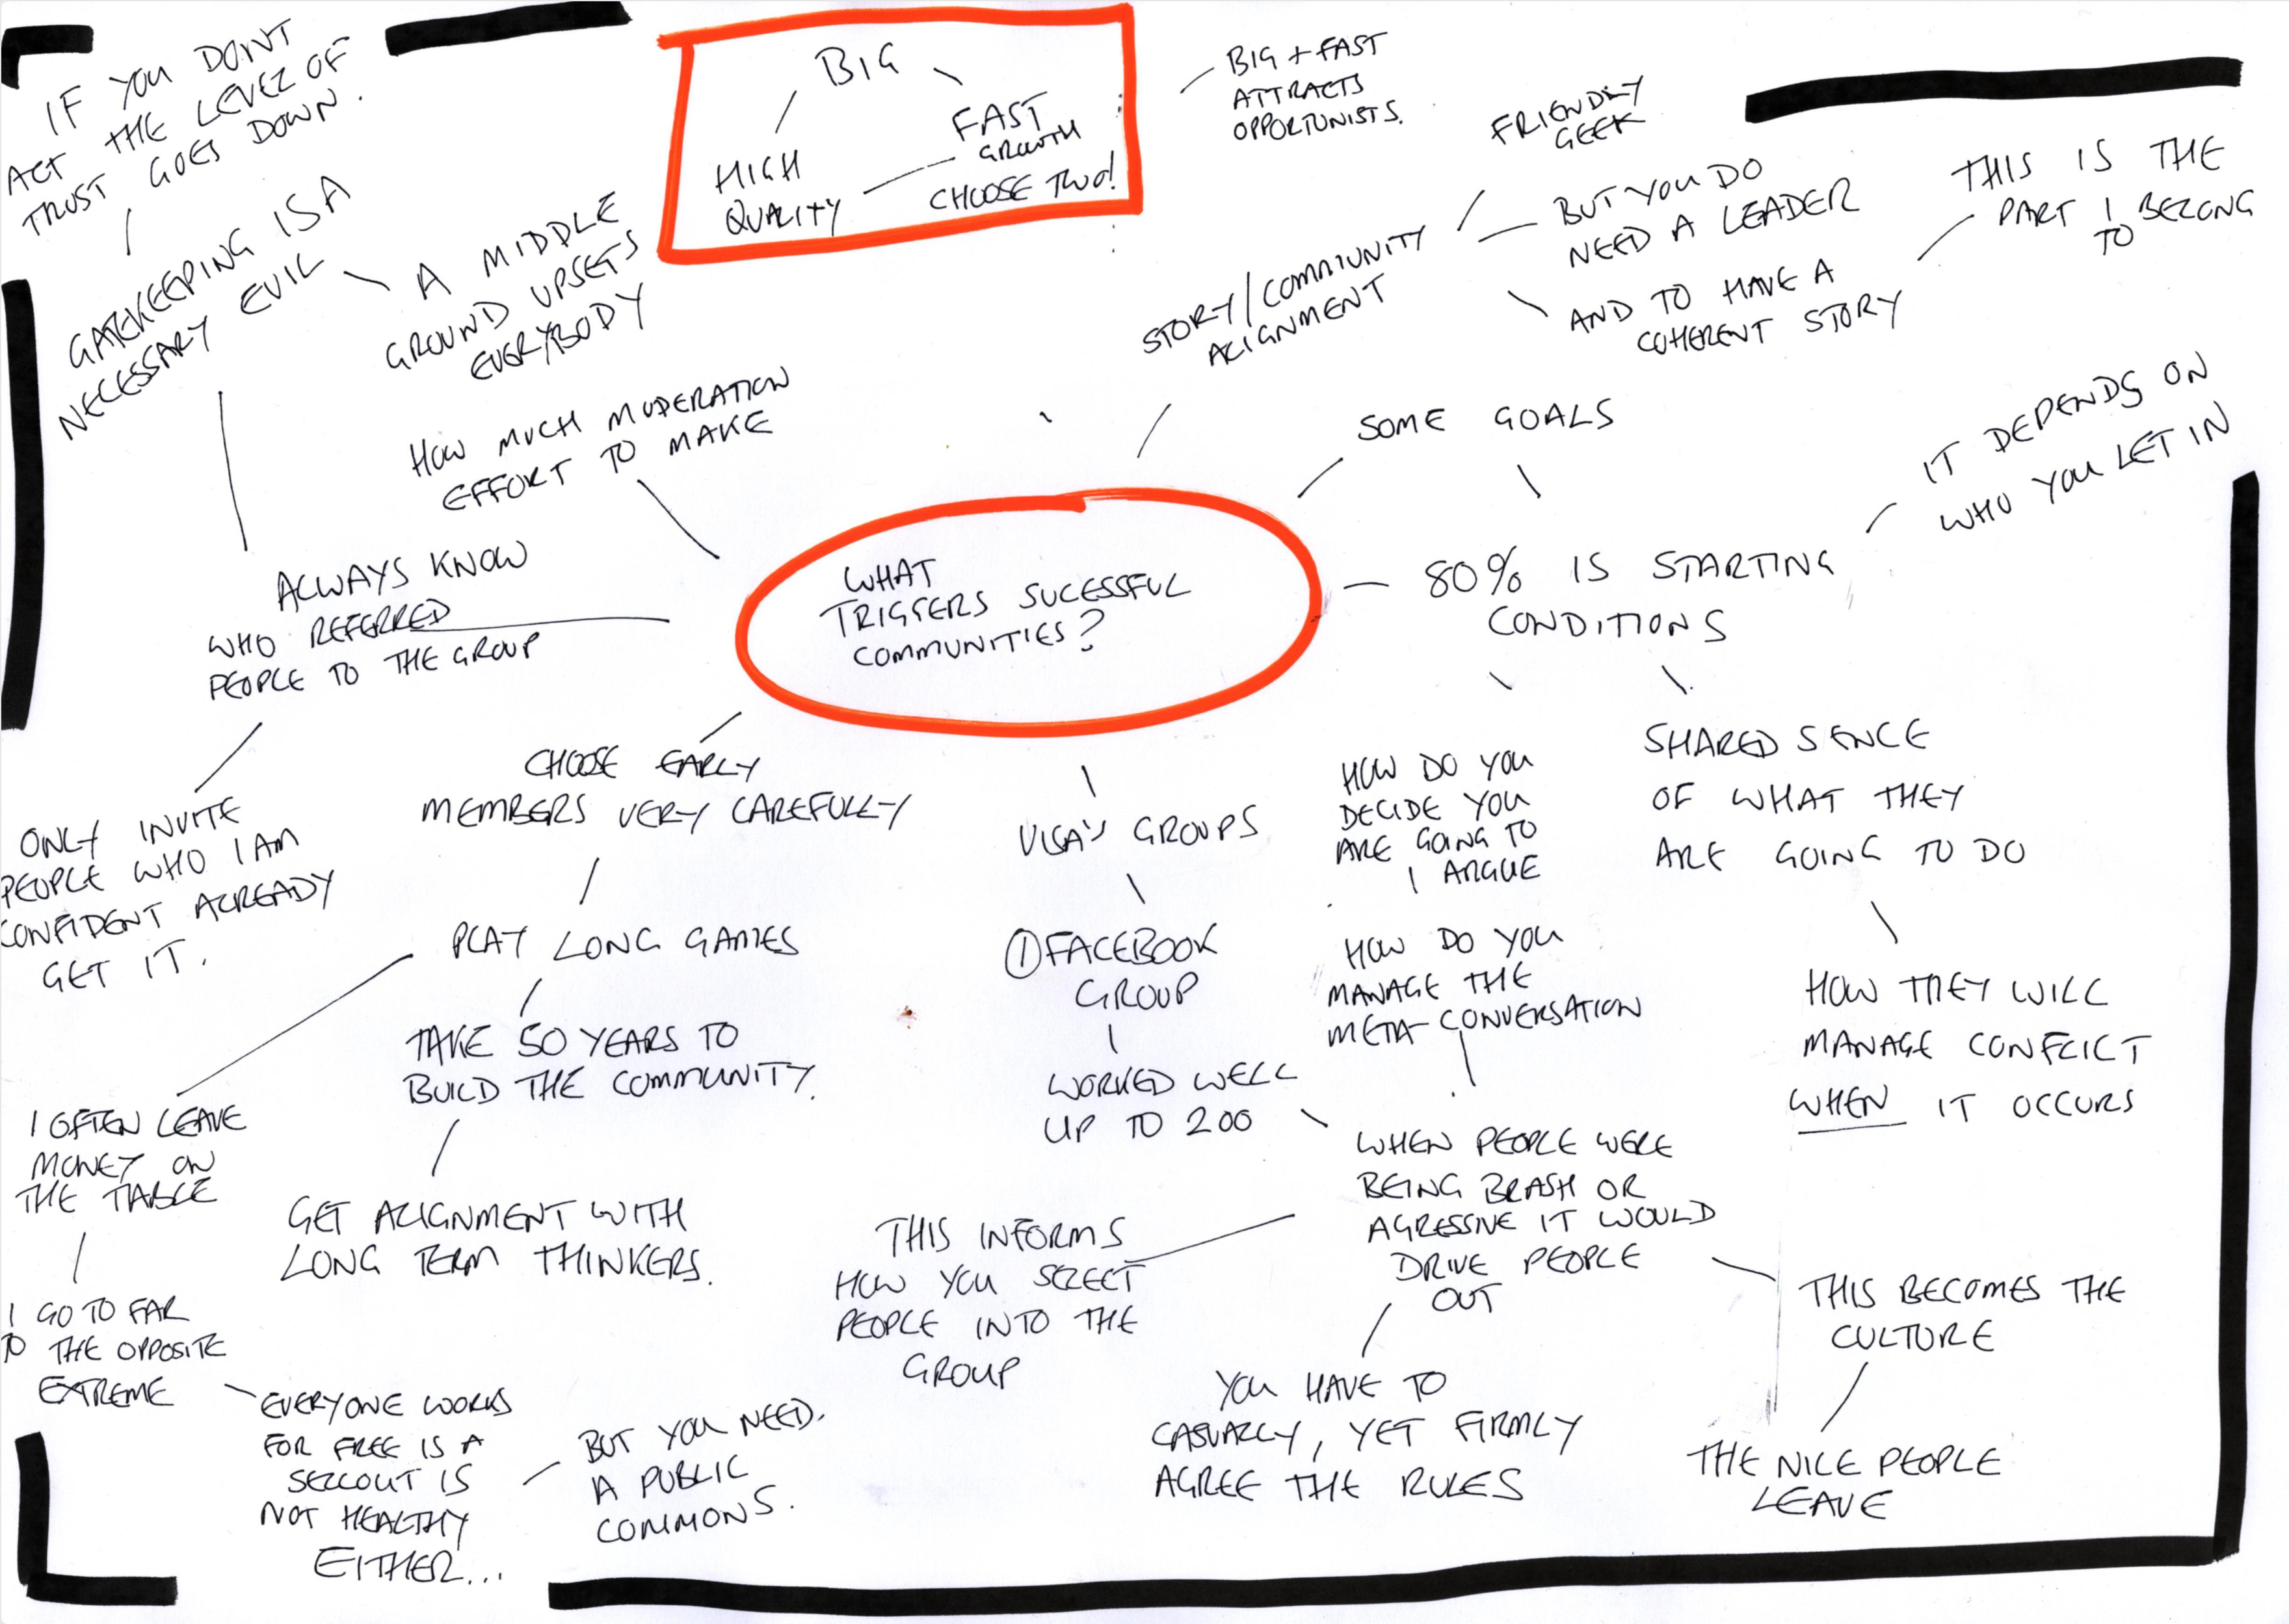 IF YOU DON'T
ACT THE LEVEL OF
TRUST GOES DOWN.
GATEKEEPING IS A
NECESSARY EVIL
A MIDDLE
GROUND UPSETS
EVERYBODY
BIG
FAST
GROWTH
HIGH
QUALITY
CHOOSE TWO!
BIG + FAST
ATTRACTS
OPPORTUNISTS.
FRIENDLY
GEEK
STORY/COMMUNITY
ALIGNMENT
BUT YOU DO
NEED A LEADER
AND TO HAVE A
COHERENT STORY
THIS IS THE
PART I BELONG
TO
HOW MUCH MODERATION
EFFORT TO MAKE
SOME GOALS
IT DEPENDS ON
WHO YOU LET IN
80% IS STARTING
CONDITIONS
WHAT
TRIGGERS SUCESSFUL
COMMUNITIES?
ALWAYS KNOW
WHO REFERRED
PEOPLE TO THE GROUP
ONLY INVITE
PEOPLE WHO I AM
CONFIDENT ALREADY
GET IT.
CHOOSE EARLY
MEMBERS VERY CAREFULLY
PLAY LONG GAMES
TAKE 50 YEARS TO
BUILD THE COMMUNITY.
GET ALIGNMENT WITH
LONG TERM THINKERS.
I OFTEN LEAVE
MONEY ON
THE TABLE
I GO TO FAR
TO THE OPPOSITE
EXTREME
EVERYONE WORKS
FOR FREE IS A
SELLOUT IS
NOT HEALTHY
EITHER...
BUT YOU NEED.
A PUBLIC
COMMONS.
GROUPS
① FACEBOOK
GROUP
WORKED WELL
UP TO 200
HOW DO YOU
DECIDE YOU
ARE GOING TO
ARGUE
HOW DO YOU
MANAGE THE
META-CONVERSATION
SHARED SENCE
OF WHAT THEY
ARE GOING TO DO
HOW THEY WILL
MANAGE CONFLICT
WHEN IT OCCURS
WHEN PEOPLE WERE
BEING BRASH OR
AGRESSIVE IT WOULD
DRIVE PEOPLE
OUT
THIS INFORMS
HOW YOU SELECT
PEOPLE INTO THE
GROUP
YOU HAVE TO
CASUALLY, YET FIRMLY
AGREE THE RULES
THIS BECOMES THE
CULTURE
THE NICE PEOPLE
LEAVE